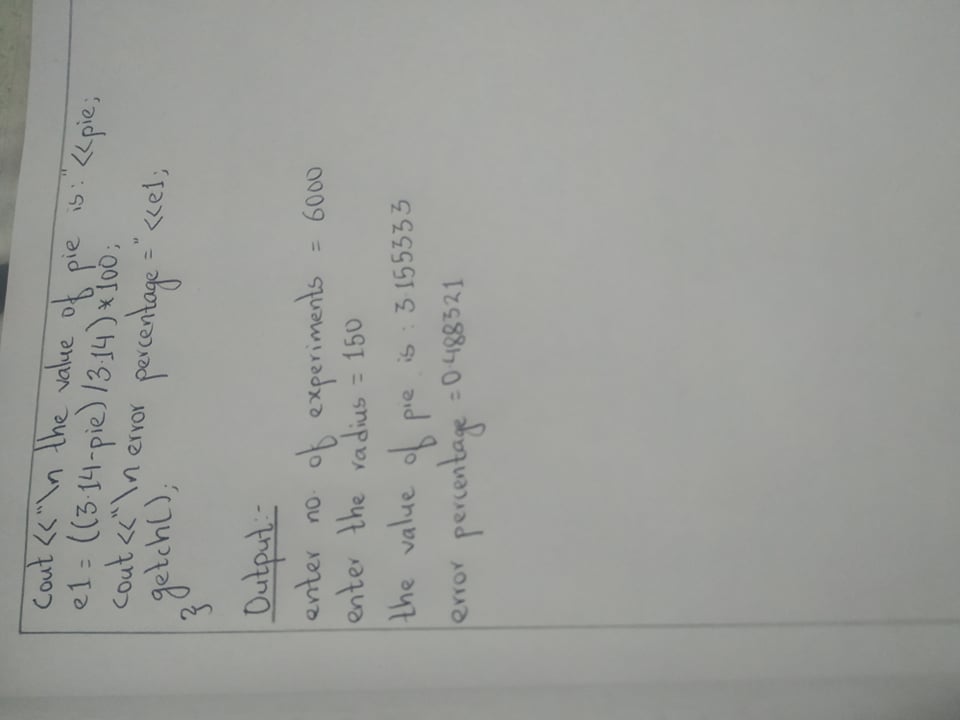 Cout<<"\n the value of pie is:"<<pie;
e1 = ((3.14-pie)/3.14)*100;
cout<<"\n error percentage="<<e1;
getch();
}
Output:-
enter no. of experiments = 6000
enter the radius = 150
the value of pie is : 3.155333
error percentage = 0.488321